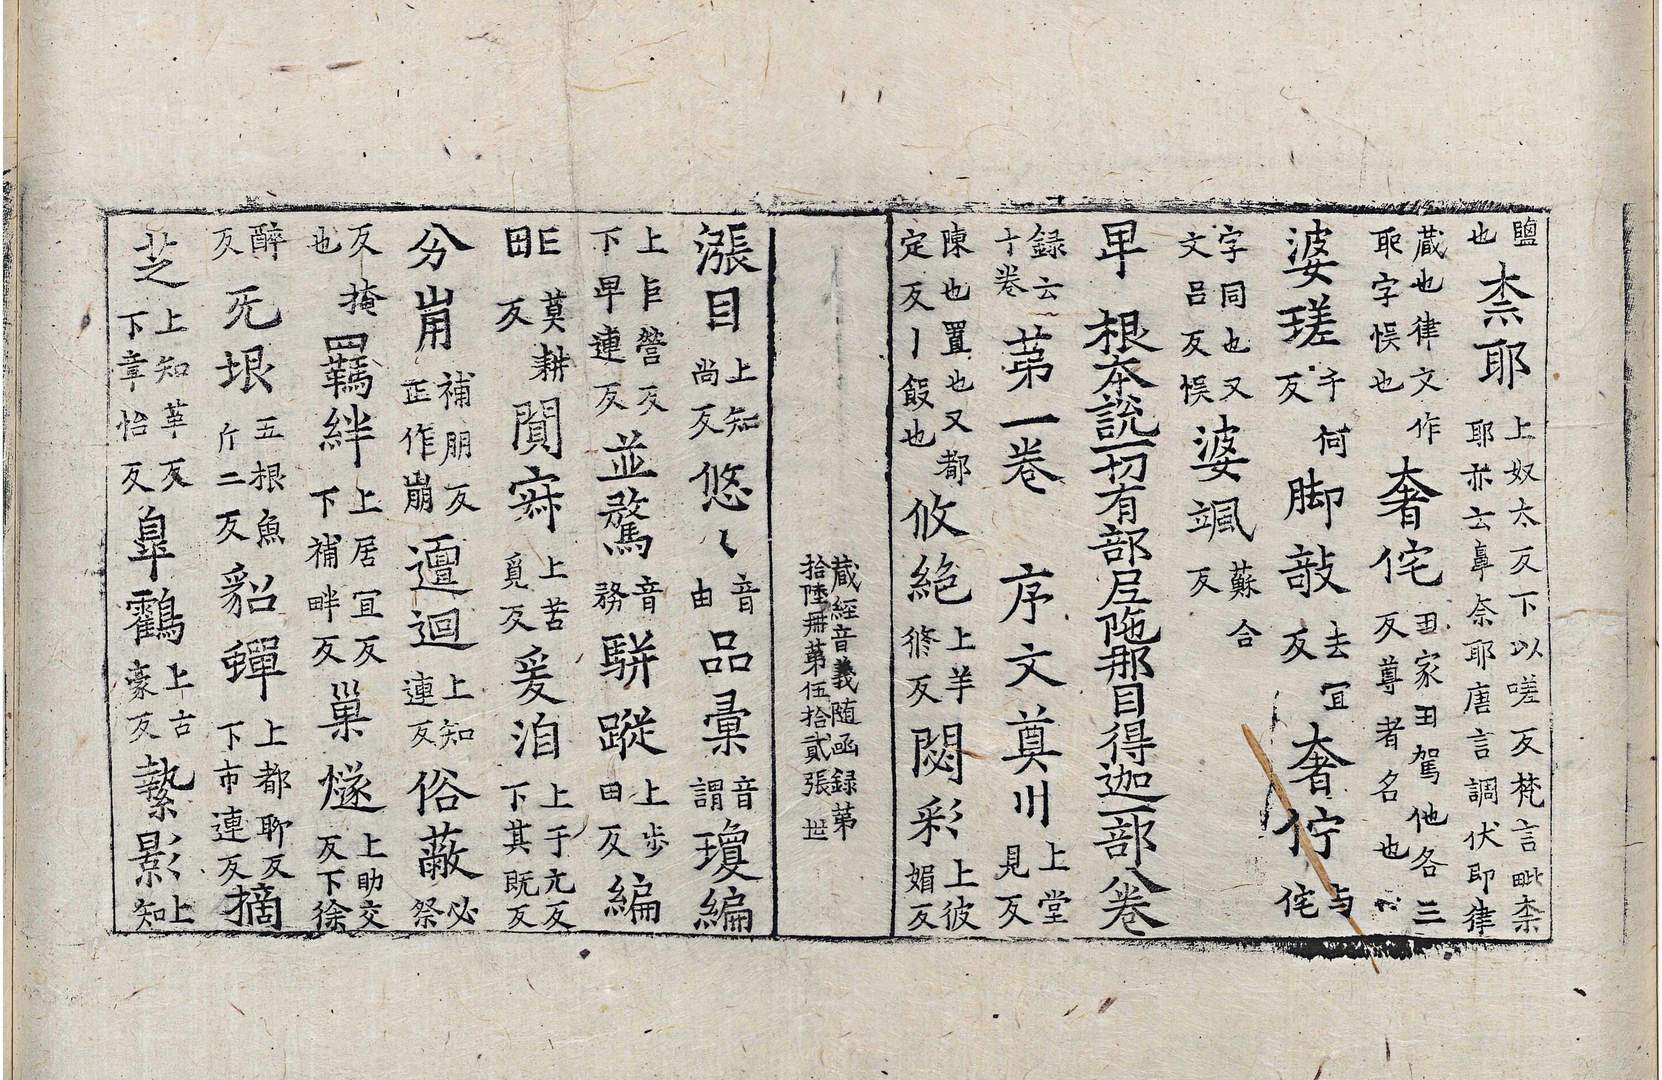 鹽也柰耶上奴太反下以嗟反梵言毗柰耶亦云鼻奈耶唐言調伏即律
蔵也律文作耶字悮也奢侘丑家丑駕他各三反尊者名也
婆瑳千何反脚敲去冝反奢佇与侘
字同也又文吕反悮婆颯蘇合反
早根本說一切有部尼陁那目得迦一部八卷
録云十卷第一卷序文奠川上堂見反
陳也置也又都定反丨飣也攸絶上羊修反閟彩上彼媚反
蔵經音義随函録第拾陸冊第伍拾貳張世
漲目上知尚反悠〻音由品彙音謂瓊編
上巨營反下早連反並騖音務駢蹤上步田反編
甿莫耕反闃寂上苦覓反爰洎上于元反下其既反
分崩補朋反正作崩邅迴上知連反俗蔽必祭
反掩也羈絆上居冝反下補畔反巢燧上助交反下徐
醉反旡垠五根魚斤二反貂蟬上都聊反下市連反摘
芝上知革反下章怡反臯鸖上古豪反縶影上知